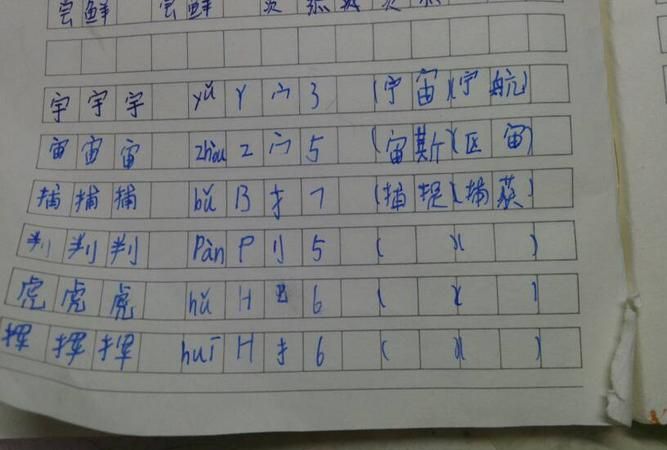 尝鲜 尝鲜
宇宇宇 yǔ Y 宀 3 (宇宙)(宇航)
宙宙宙 zhòu Z 宀 5 (宙斯)(区宙)
捕捕捕 bǔ B 扌 7 (捕捉)(捕获)
判判判 Pàn P 刂 5 ( )( )
虎虎虎 hǔ H 虍 6 ( )( )
挥挥挥 huī H 扌 6 ( )( )